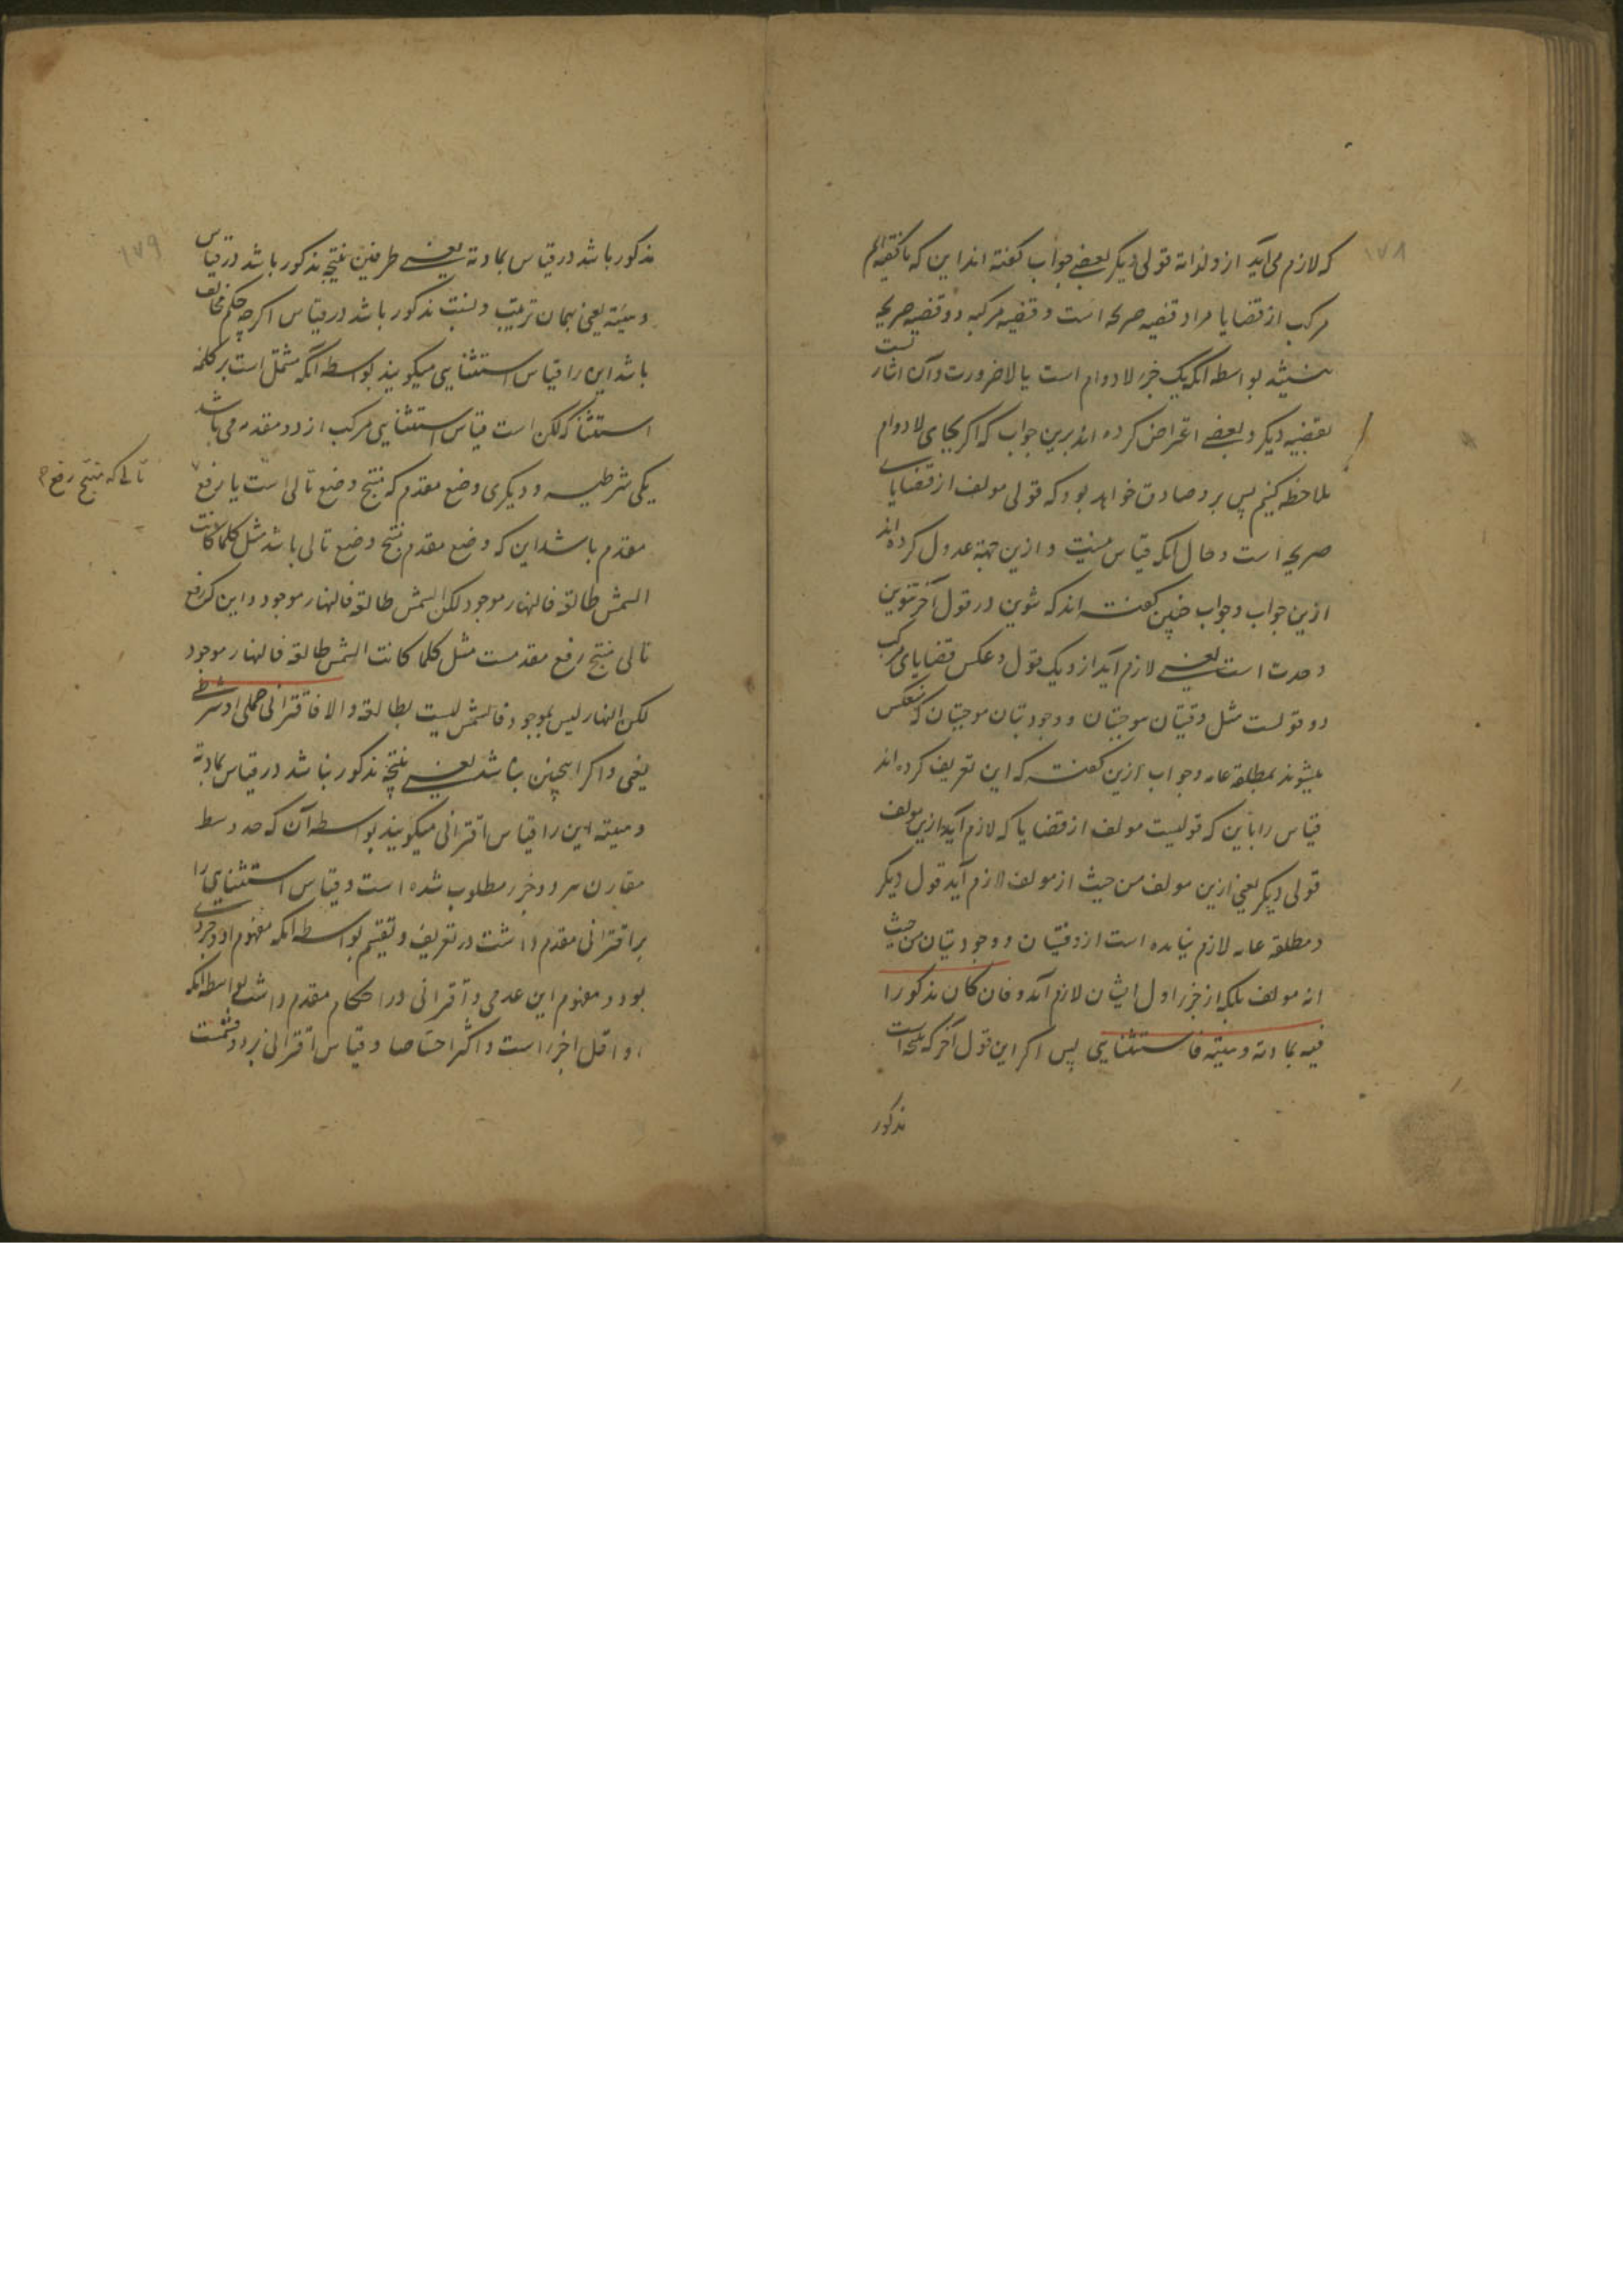 ۱۷۸
که لازم می‌آید از و لذاته قولی دیگر بعضی جواب گفته اند این که ما گفتیم
مرکب از قضایا مراد قضیه صریحه است و قضیه مرکبه دو قضیه صریحه
نیستند بواسطه آنکه یک جزء لادوام است یا لاضرورت و آن اشارتست
بقضیه دیگر و بعضی اعتراض کرده اند برین جواب که اگر بجای لادوام
ملاحظه کنیم پس برو صادق خواهد بود که قولی مولف از قضایای
صریحه است و حال آنکه قیاس نیست و ازین جهة عدول کرده اند
ازین جواب و جواب چنین گفته اند که تنوین در قول آخر تنوین
وحدت است یعنی لازم آید ازو یک قول و عکس قضایای مرکب
دو قولست مثل وقتیتان موجبتان و وجودیتان موجبتان که منعکس
میشوند بمطلقه عامه و جواب ازین گفته که این تعریف کرده اند
قیاس را باین که قولیست مولف از قضایا که لازم آید ازین مولف
قولی دیگر یعنی ازین مولف من حیث از مولف لازم آید قول دیگر
و مطلقه عامه لازم نیامده است از وقتیتان و وجودیتان من حیث
انه مولف بلکه از جزء اول ایشان لازم آمده فان کان مذکورا
فیه بمادته و هیئته فاستثنایی پس اگر این قول آخر که نتیجه است
مذکور
۱۷۹
مذکور باشد در قیاس بمادته یعنی طرفین نتیجه مذکور باشد در قیاس
و هیئته یعنی بهمان ترتیب و نسبت مذکور باشد در قیاس اگرچه حکم مخالف
باشد این را قیاس استثنایی میگویند بواسطه آنکه مشتمل است بر کلمه
استثنا که لکن است قیاس استثنایی مرکب از دو مقدمه می باشد
یکی شرطیه و دیگری وضع مقدم که منتج وضع تالی است یا رفع
تالی که منتج رفع
مقدم باشد این که وضع مقدم منتج وضع تالی باشد مثل کلما کانت
الشمس طالعة فالنهار موجود لکن الشمس طالعة فالنهار موجود و این که رفع
تالی منتج رفع مقدمست مثل کلما کانت الشمس طالعة فالنهار موجود
لکن النهار لیس بموجود فالشمس لیست بطالعة و الا فاقترانی حملی او شرطی
یعنی و اگر اینچنین نباشد یعنی نتیجه مذکور نباشد در قیاس بمادته
و هیئته این را قیاس اقترانی میگویند بواسطه آن که حد وسط
مقارن هر دو جزء مطلوب شده است و قیاس استثنایی را
بر اقترانی مقدم داشت در تعریف و تقسیم بواسطه آنکه مفهوم او وجودی
بود و مفهوم این عدمی و اقترانی در احکام مقدم داشت بواسطه آنکه
او اقل اجزاء است و اکثر احتیاجا و قیاس اقترانی بر دو قسمست